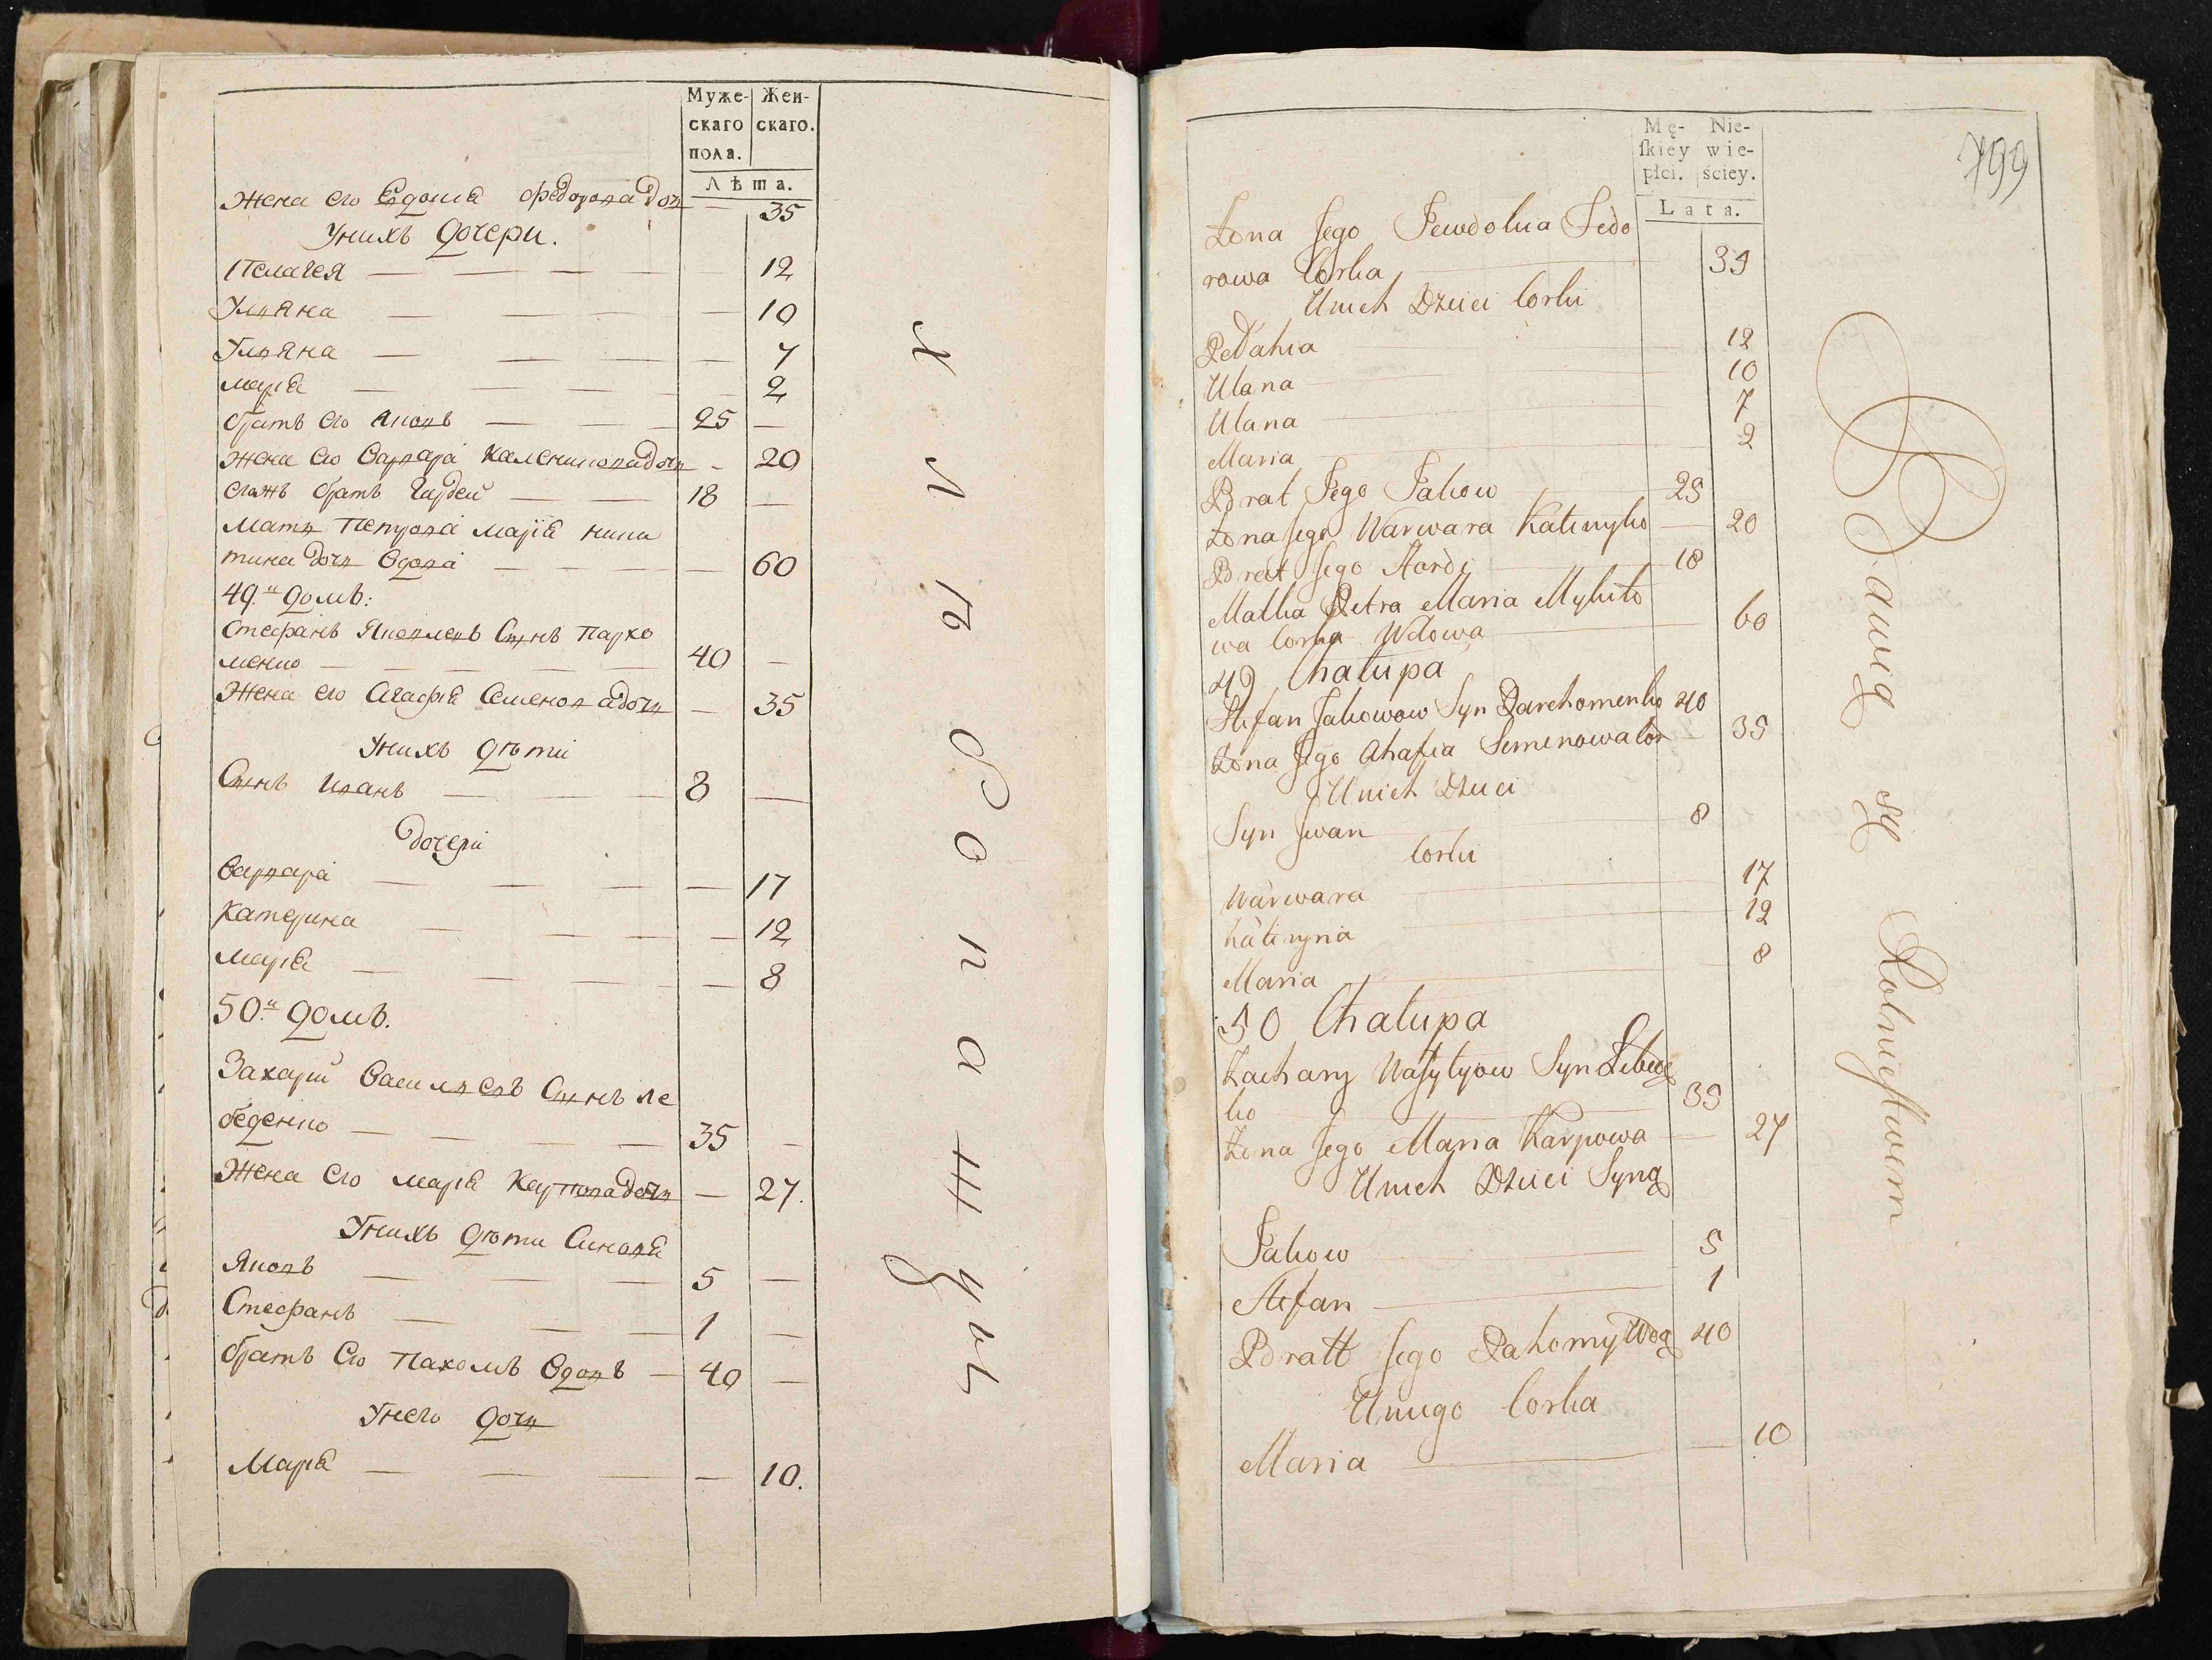 Муже-
скаго
пола.
Жен-
скаго.
Лѣта.
Жена его Евдокиа Федорова дочь — 35
У нихъ дочери.
Пелагея — 12
Ульяна — 10
Ульяна — 7
Мариа — 2
братъ его Яковъ — 25 —
Жена его Варвара Калениковадочь - 20
братъ Гардей — 18 —
Мать Петрова Мариа Ники
тина дочь Вдова — 60
49.й домъ:
Стефанъ Яковлевъ Сынъ Пархо
менко — 40 —
Жена его Агафиа Семеновадочь — 35
У нихъ дѣти
Сынъ Иванъ — 8 —
дочери
Варвара — 17
Катерина — 12
Мариа — 8
50.й домъ.
Захарий Васильевъ Сынъ Ле
беденко — 35 -
Жена его Мариа Карповадочь — 27.
У нихъ дѣти Синови
Яковъ — 5 —
Стефанъ — 1 —
братъ Его Пахомъ Вдовъ — 40 —
У него дочь
Мариа — 10.
Хлѣбопашцы
799
Mę-
ſkiey
płci.
Nie-
wie-
ściey.
Lata.
Zona Jego Fewdokia Fedo
rowa Corka 35
Unich Dzieci Corki
Pelahia 12
Ulana 10
Ulana 7
Maria 2
Brat Jego Jakow 25
Zona Jego Warwara Kalinyko — 20
Brat Jego Hordi 18
Matka Petra Maria Mykito
wa Corka Wdowa 60
49 Chalupa
Stefan Jakowow Syn Parchomenko 40
Zona Jego Ahafia Semenowa Cor 35
Unich Dzieci
Syn Jwan 8
Corki
Warwara 17
Katiryna 12
Maria 8
50 Chalupa
Zachary Wasylyow Syn Lebed
ko 35
Zona Jego Maria Karpowa — 27
Unich Dzieci Syny
Jakow 5
Stefan 1
Bratt Jego Pahomy Wdo 40
Uniego Corka
Maria — 10
Bawią się Rolnictwem